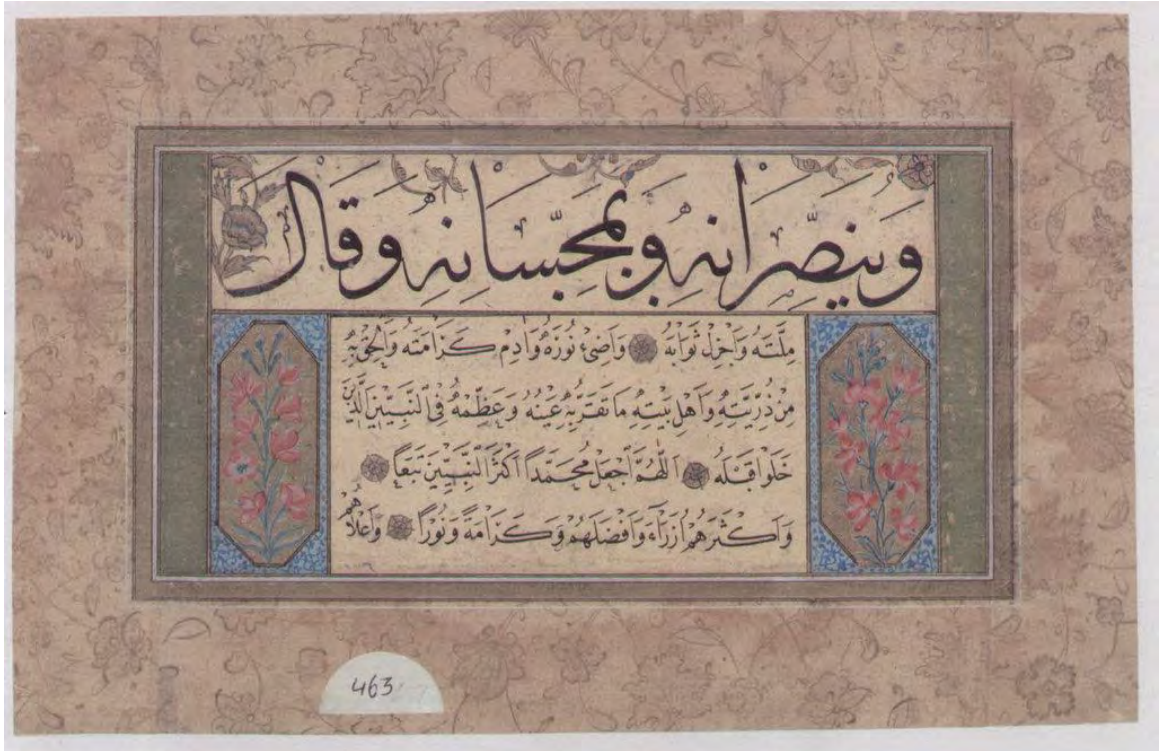 وَيُنَصِّرَانِهِ وَيُمَجِّسَانِهِ وَقَالَ
مِلَّتِهِ وَاَجْزِلْ ثَوَابَهُ وَاَضِئْ نُورَهُ وَاَدِمْ كَرَامَتَهُ وَاَلْحِقْ بِهِ
مِنْ ذُرِّيَّتِهِ وَاَهْلِ بَيْتِهِ مَا تَقَرُّ بِهِ عَيْنُهُ وَعَظِّمْهُ فِي النَّبِيِّينَ الَّذِينَ
خَلَوْا قَبْلَهُ اَللّٰهُمَّ اجْعَلْ مُحَمَّداً اَكْثَرَ النَّبِيِّينَ تَبَعاً
وَاَكْثَرَهُمْ اُزَرَاءَ وَاَفْضَلَهُمْ وَكَرَامَةً وَنُوراً وَاَعْلَاهُمْ
463